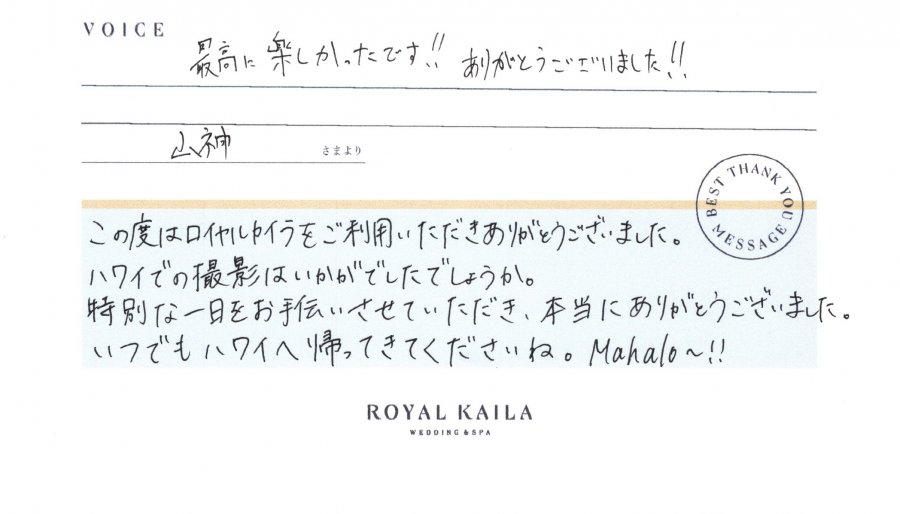 VOICE
最高に楽しかったです!! ありがとうございました!!
山神 さまより
BEST THANK YOU MESSAGE
この度はロイヤルカイラをご利用いただきありがとうございました。
ハワイでの撮影はいかがでしたでしょうか。
特別な一日をお手伝いさせていただき、本当にありがとうございました。
いつでもハワイへ帰ってきてくださいね。Mahalo〜!!
ROYAL KAILA
WEDDING & SPA